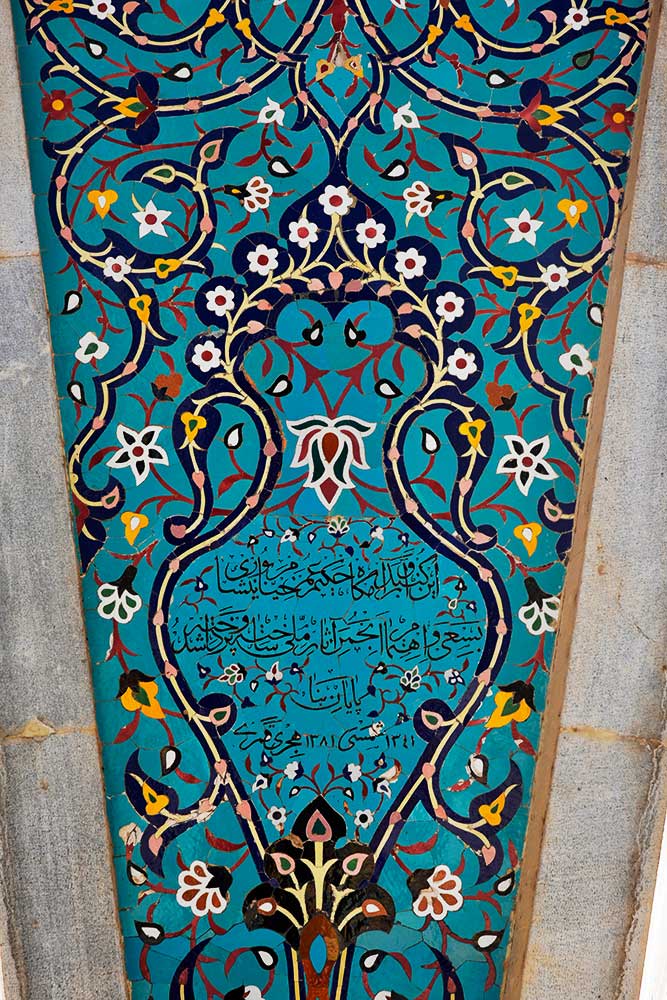 این گنبد و آرامگاه حکیم عمر خیام نیشابوری
بسعی و اهتمام انجمن آثار ملی ساخته و پرداخته شد
پایان بنا
۱۳۴۱ شمسی ۱۳۸۱ هجری قمری